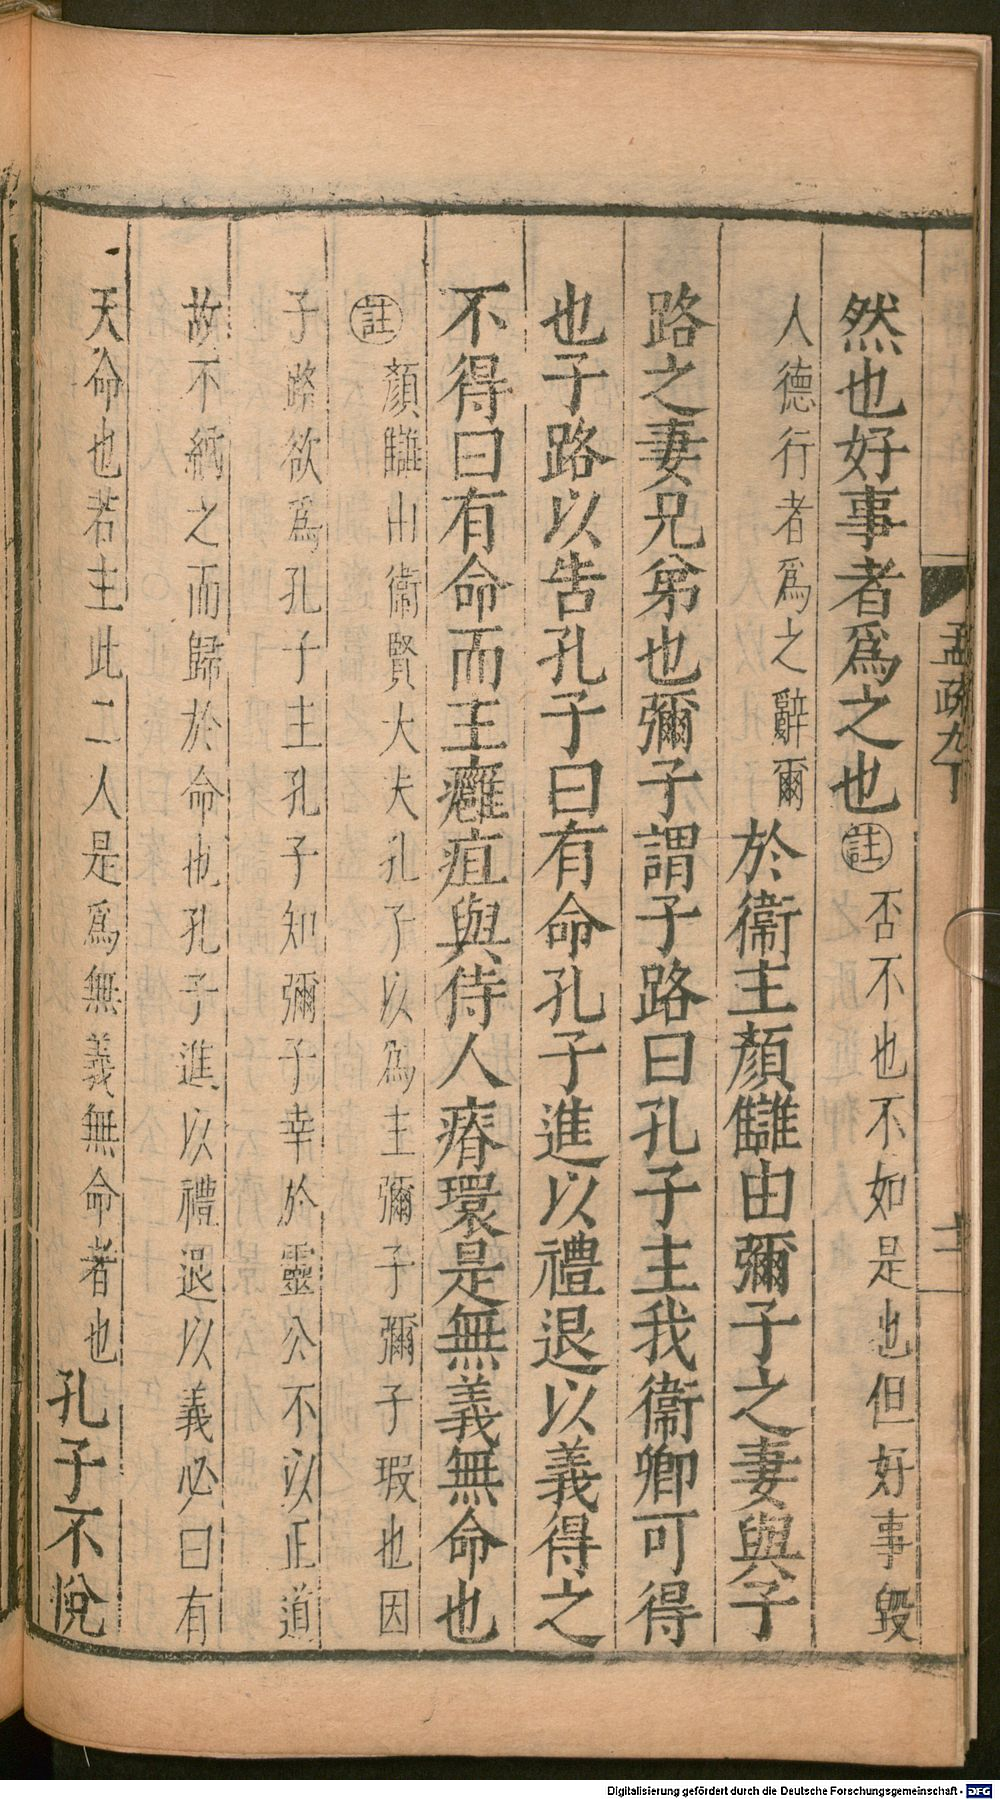 然也好事者爲之也註否不也不如是也但好事毀
人德行者爲之辭爾於衞主顏讎由彌子之妻與子
路之妻兄弟也彌子謂子路曰孔子主我衞卿可得
也子路以告孔子曰有命孔子進以禮退以義得之
不得曰有命而主癰疽與侍人瘠環是無義無命也
註顏讎由衞賢大夫孔子以爲主彌子彌子瑕也因
子路欲爲孔子主孔子知彌子幸於靈公不以正道
故不納之而歸於命也孔子進以禮退以義必曰有
天命也若主此二人是爲無義無命者也孔子不悅
孟疏九下
十二
Digitalisierung gefördert durch die Deutsche Forschungsgemeinschaft - DFG